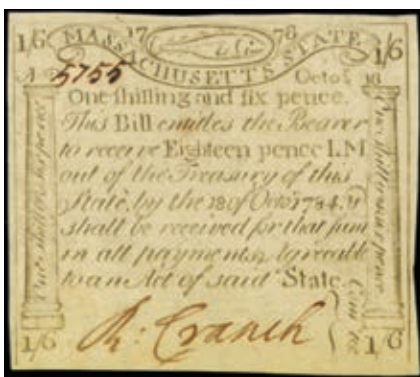 1/6 17 78 1/6
MASSACHUSETTS STATE
N 5755 Octo.r 18
One shilling and six pence.
This Bill entitles the Bearer
to receive Eighteen pence L.M
out of the Treasury of this
State, by the 18 of Octo.r 1784, &
shall be received for that sum
in all payments, agreeable
to an Act of said State.
R: Cranch
Com.tee
One shilling & six pence
1/6 1/6